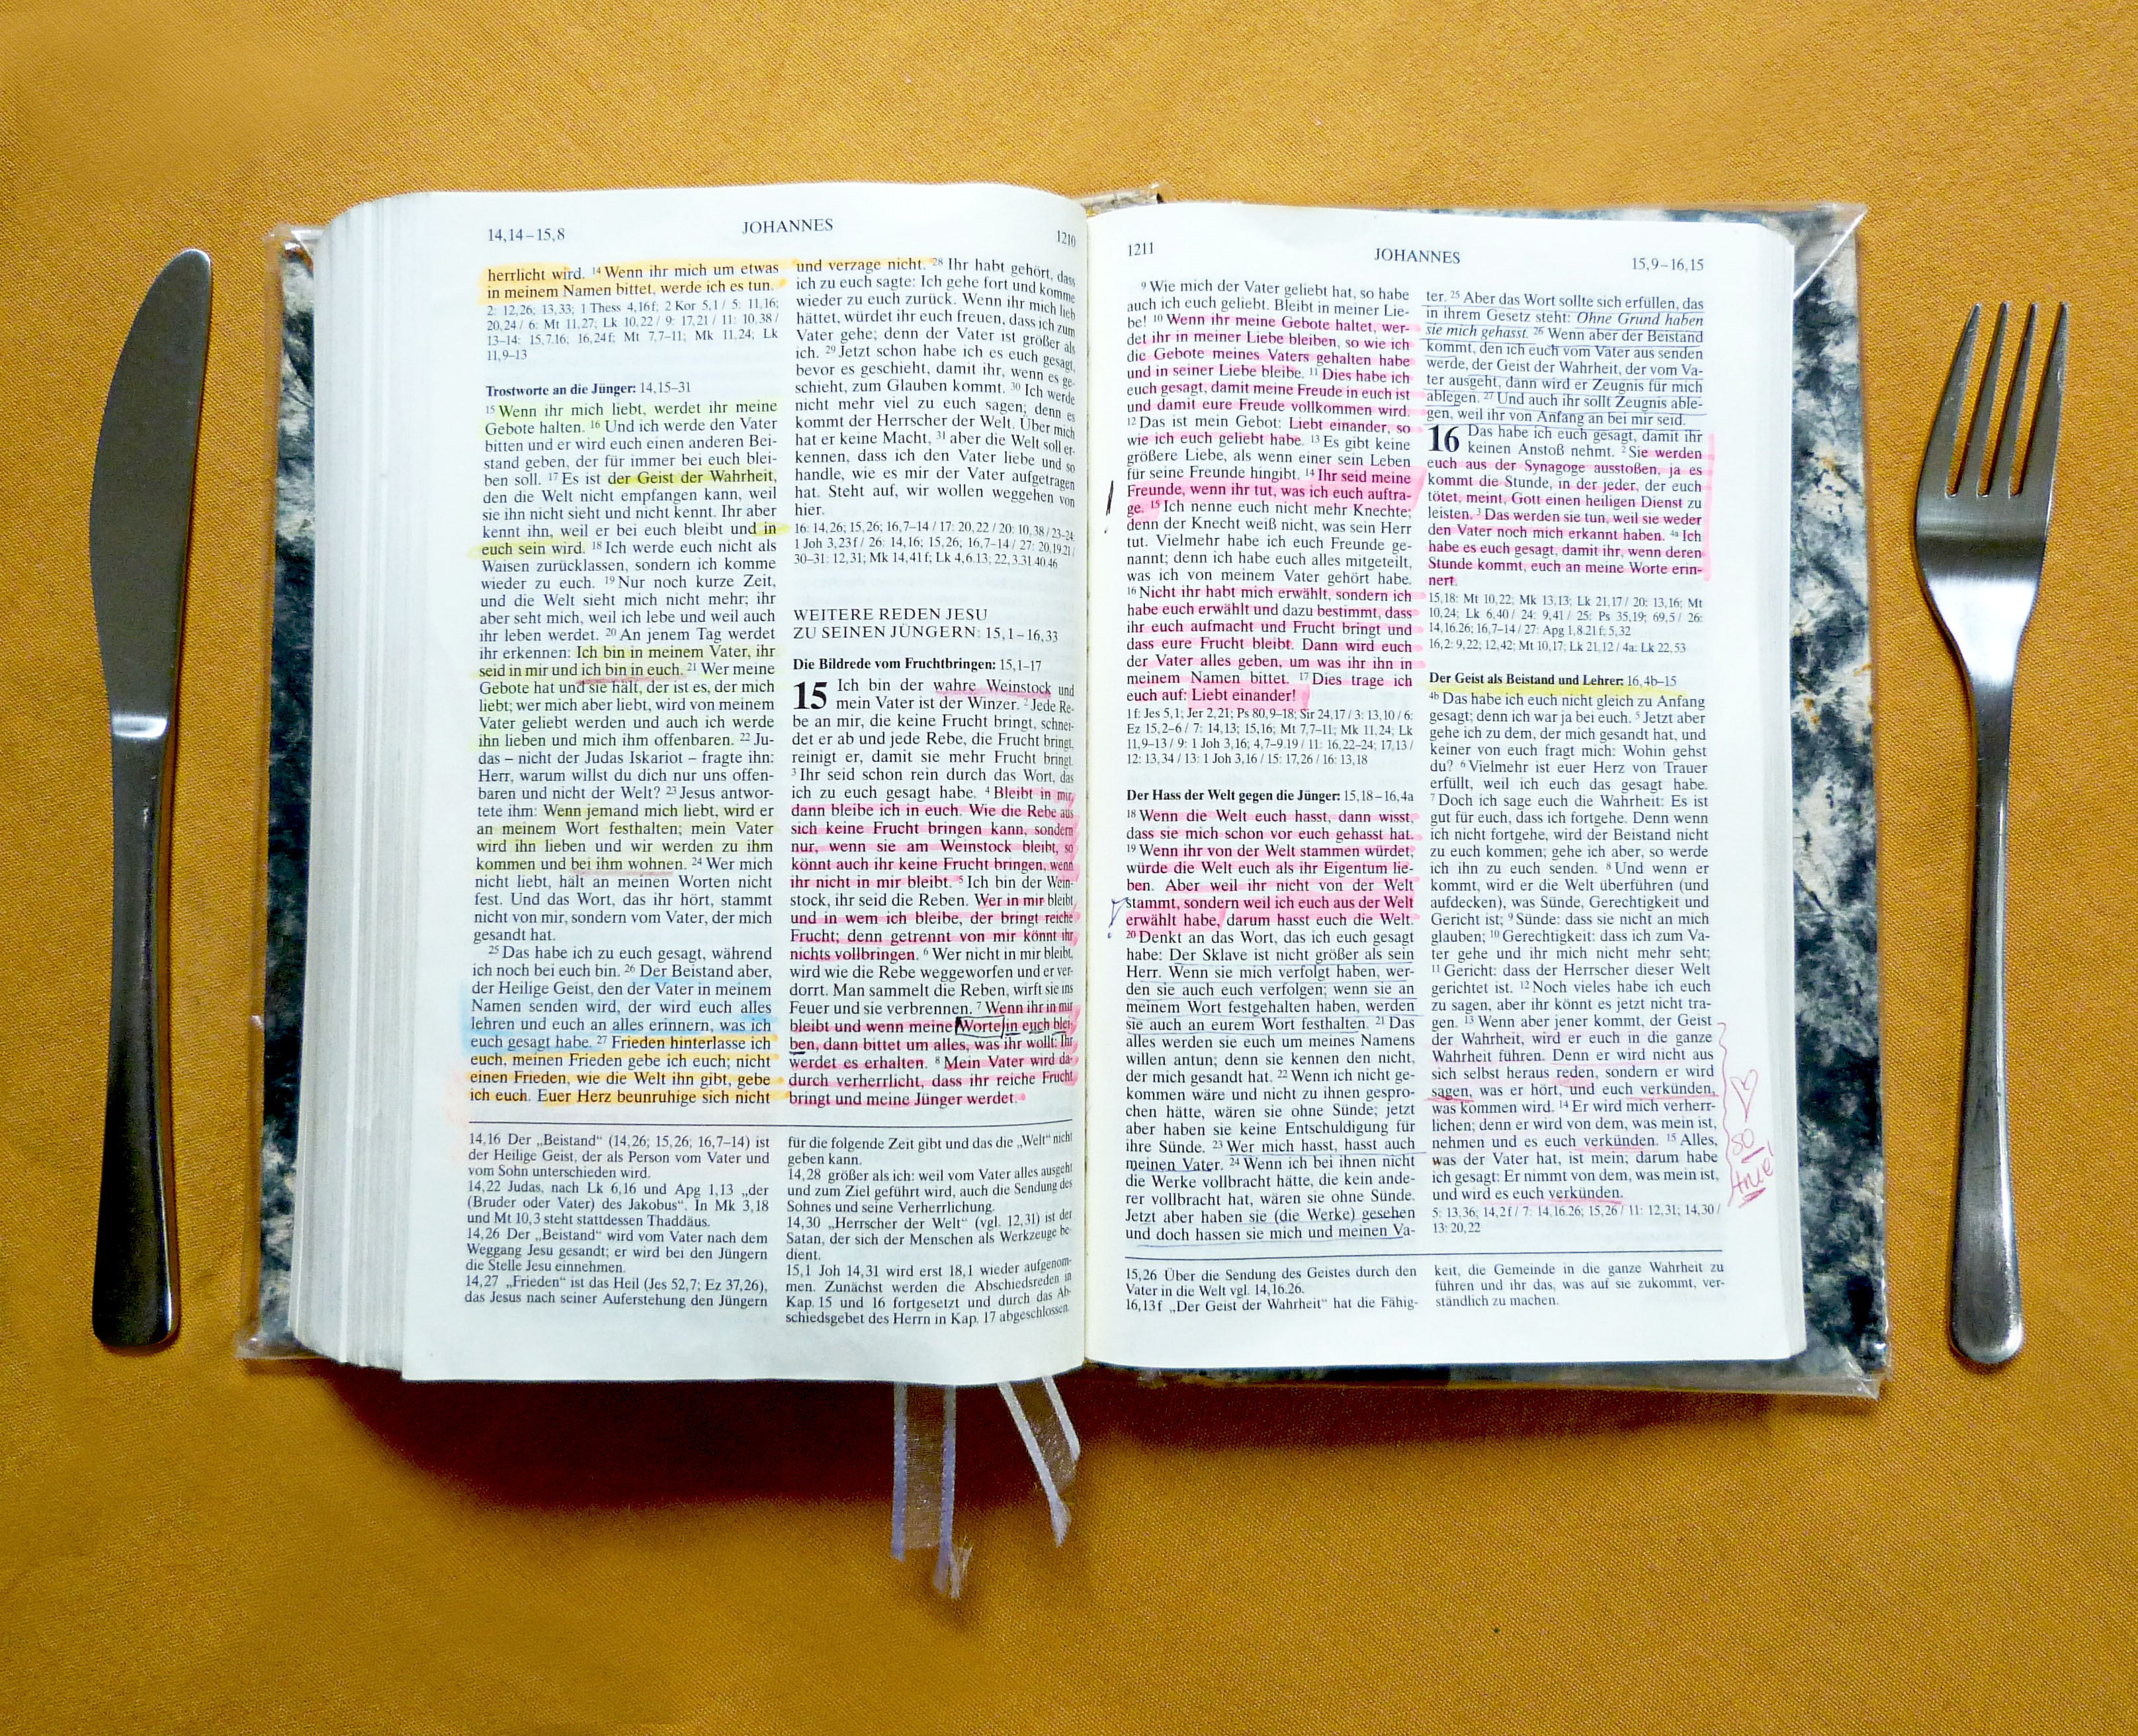 14,14–15,8
JOHANNES
1210
herrlicht wird. 14 Wenn ihr mich um etwas
in meinem Namen bittet, werde ich es tun.
2: 12,26; 13,33; 1 Thess 4,16f; 2 Kor 5,1 / 5: 11,16;
20,24 / 6: Mt 11,27; Lk 10,22 / 9: 17,21 / 11: 10,38 /
13–14: 15,7.16; 16,24f; Mt 7,7–11; Mk 11,24; Lk
11,9–13
Trostworte an die Jünger: 14,15–31
15 Wenn ihr mich liebt, werdet ihr meine
Gebote halten. 16 Und ich werde den Vater
bitten und er wird euch einen anderen Bei-
stand geben, der für immer bei euch blei-
ben soll. 17 Es ist der Geist der Wahrheit,
den die Welt nicht empfangen kann, weil
sie ihn nicht sieht und nicht kennt. Ihr aber
kennt ihn, weil er bei euch bleibt und in
euch sein wird. 18 Ich werde euch nicht als
Waisen zurücklassen, sondern ich komme
wieder zu euch. 19 Nur noch kurze Zeit,
und die Welt sieht mich nicht mehr; ihr
aber seht mich, weil ich lebe und weil auch
ihr leben werdet. 20 An jenem Tag werdet
ihr erkennen: Ich bin in meinem Vater, ihr
seid in mir und ich bin in euch. 21 Wer meine
Gebote hat und sie hält, der ist es, der mich
liebt; wer mich aber liebt, wird von meinem
Vater geliebt werden und auch ich werde
ihn lieben und mich ihm offenbaren. 22 Ju-
das – nicht der Judas Iskariot – fragte ihn:
Herr, warum willst du dich nur uns offen-
baren und nicht der Welt? 23 Jesus antwor-
tete ihm: Wenn jemand mich liebt, wird er
an meinem Wort festhalten; mein Vater
wird ihn lieben und wir werden zu ihm
kommen und bei ihm wohnen. 24 Wer mich
nicht liebt, hält an meinen Worten nicht
fest. Und das Wort, das ihr hört, stammt
nicht von mir, sondern vom Vater, der mich
gesandt hat.
25 Das habe ich zu euch gesagt, während
ich noch bei euch bin. 26 Der Beistand aber,
der Heilige Geist, den der Vater in meinem
Namen senden wird, der wird euch alles
lehren und euch an alles erinnern, was ich
euch gesagt habe. 27 Frieden hinterlasse ich
euch, meinen Frieden gebe ich euch; nicht
einen Frieden, wie die Welt ihn gibt, gebe
ich euch. Euer Herz beunruhige sich nicht
und verzage nicht. 28 Ihr habt gehört, dass
ich zu euch sagte: Ich gehe fort und komme
wieder zu euch zurück. Wenn ihr mich lieb
hättet, würdet ihr euch freuen, dass ich zum
Vater gehe; denn der Vater ist größer als
ich. 29 Jetzt schon habe ich es euch gesagt,
bevor es geschieht, damit ihr, wenn es ge-
schieht, zum Glauben kommt. 30 Ich werde
nicht mehr viel zu euch sagen; denn es
kommt der Herrscher der Welt. Über mich
hat er keine Macht, 31 aber die Welt soll er-
kennen, dass ich den Vater liebe und so
handle, wie es mir der Vater aufgetragen
hat. Steht auf, wir wollen weggehen von
hier.
16: 14,26; 15,26; 16,7–14 / 17: 20,22 / 20: 10,38 / 23–24:
1 Joh 3,23f / 26: 14,16; 15,26; 16,7–14 / 27: 20,19.21 /
30–31: 12,31; Mk 14,41f; Lk 4,6.13; 22,3.31.40.46
WEITERE REDEN JESU
ZU SEINEN JÜNGERN: 15,1–16,33
Die Bildrede vom Fruchtbringen: 15,1–17
15 Ich bin der wahre Weinstock und
mein Vater ist der Winzer. 2 Jede Re-
be an mir, die keine Frucht bringt, schnei-
det er ab und jede Rebe, die Frucht bringt,
reinigt er, damit sie mehr Frucht bringt.
3 Ihr seid schon rein durch das Wort, das
ich zu euch gesagt habe. 4 Bleibt in mir,
dann bleibe ich in euch. Wie die Rebe aus
sich keine Frucht bringen kann, sondern
nur, wenn sie am Weinstock bleibt, so
könnt auch ihr keine Frucht bringen, wenn
ihr nicht in mir bleibt. 5 Ich bin der Wein-
stock, ihr seid die Reben. Wer in mir bleibt
und in wem ich bleibe, der bringt reiche
Frucht; denn getrennt von mir könnt ihr
nichts vollbringen. 6 Wer nicht in mir bleibt,
wird wie die Rebe weggeworfen und er ver-
dorrt. Man sammelt die Reben, wirft sie ins
Feuer und sie verbrennen. 7 Wenn ihr in mir
bleibt und wenn meine Worte in euch blei-
ben, dann bittet um alles, was ihr wollt: Ihr
werdet es erhalten. 8 Mein Vater wird da-
durch verherrlicht, dass ihr reiche Frucht
bringt und meine Jünger werdet.
14,16 Der „Beistand“ (14,26; 15,26; 16,7–14) ist
der Heilige Geist, der als Person vom Vater und
vom Sohn unterschieden wird.
14,22 Judas, nach Lk 6,16 und Apg 1,13 „der
(Bruder oder Vater) des Jakobus“. In Mk 3,18
und Mt 10,3 steht stattdessen Thaddäus.
14,26 Der „Beistand“ wird vom Vater nach dem
Weggang Jesu gesandt; er wird bei den Jüngern
die Stelle Jesu einnehmen.
14,27 „Frieden“ ist das Heil (Jes 52,7; Ez 37,26),
das Jesus nach seiner Auferstehung den Jüngern
für die folgende Zeit gibt und das die „Welt“ nicht
geben kann.
14,28 größer als ich: weil vom Vater alles ausgeht
und zum Ziel geführt wird, auch die Sendung des
Sohnes und seine Verherrlichung.
14,30 „Herrscher der Welt“ (vgl. 12,31) ist der
Satan, der sich der Menschen als Werkzeuge be-
dient.
15,1 Joh 14,31 wird erst 18,1 wieder aufgenom-
men. Zunächst werden die Abschiedsreden in
Kap. 15 und 16 fortgesetzt und durch das Ab-
schiedsgebet des Herrn in Kap. 17 abgeschlossen.
1211
JOHANNES
15,9–16,15
9 Wie mich der Vater geliebt hat, so habe
auch ich euch geliebt. Bleibt in meiner Lie-
be! 10 Wenn ihr meine Gebote haltet, wer-
det ihr in meiner Liebe bleiben, so wie ich
die Gebote meines Vaters gehalten habe
und in seiner Liebe bleibe. 11 Dies habe ich
euch gesagt, damit meine Freude in euch ist
und damit eure Freude vollkommen wird.
12 Das ist mein Gebot: Liebt einander, so
wie ich euch geliebt habe. 13 Es gibt keine
größere Liebe, als wenn einer sein Leben
für seine Freunde hingibt. 14 Ihr seid meine
Freunde, wenn ihr tut, was ich euch auftra-
ge. 15 Ich nenne euch nicht mehr Knechte;
denn der Knecht weiß nicht, was sein Herr
tut. Vielmehr habe ich euch Freunde ge-
nannt; denn ich habe euch alles mitgeteilt,
was ich von meinem Vater gehört habe.
16 Nicht ihr habt mich erwählt, sondern ich
habe euch erwählt und dazu bestimmt, dass
ihr euch aufmacht und Frucht bringt und
dass eure Frucht bleibt. Dann wird euch
der Vater alles geben, um was ihr ihn in
meinem Namen bittet. 17 Dies trage ich
euch auf: Liebt einander!
1f: Jes 5,1; Jer 2,21; Ps 80,9–18; Sir 24,17 / 3: 13,10 / 6:
Ez 15,2–6 / 7: 14,13; 15,16; Mt 7,7–11; Mk 11,24; Lk
11,9–13 / 9: 1 Joh 3,16; 4,7–9.19 / 11: 16,22–24; 17,13 /
12: 13,34 / 13: 1 Joh 3,16 / 15: 17,26 / 16: 13,18
Der Hass der Welt gegen die Jünger: 15,18–16,4a
18 Wenn die Welt euch hasst, dann wisst,
dass sie mich schon vor euch gehasst hat.
19 Wenn ihr von der Welt stammen würdet,
würde die Welt euch als ihr Eigentum lie-
ben. Aber weil ihr nicht von der Welt
stammt, sondern weil ich euch aus der Welt
erwählt habe, darum hasst euch die Welt.
20 Denkt an das Wort, das ich euch gesagt
habe: Der Sklave ist nicht größer als sein
Herr. Wenn sie mich verfolgt haben, wer-
den sie auch euch verfolgen; wenn sie an
meinem Wort festgehalten haben, werden
sie auch an eurem Wort festhalten. 21 Das
alles werden sie euch um meines Namens
willen antun; denn sie kennen den nicht,
der mich gesandt hat. 22 Wenn ich nicht ge-
kommen wäre und nicht zu ihnen gespro-
chen hätte, wären sie ohne Sünde; jetzt
aber haben sie keine Entschuldigung für
ihre Sünde. 23 Wer mich hasst, hasst auch
meinen Vater. 24 Wenn ich bei ihnen nicht
die Werke vollbracht hätte, die kein ande-
rer vollbracht hat, wären sie ohne Sünde.
Jetzt aber haben sie (die Werke) gesehen
und doch hassen sie mich und meinen Va-
ter. 25 Aber das Wort sollte sich erfüllen, das
in ihrem Gesetz steht: Ohne Grund haben
sie mich gehasst. 26 Wenn aber der Beistand
kommt, den ich euch vom Vater aus senden
werde, der Geist der Wahrheit, der vom Va-
ter ausgeht, dann wird er Zeugnis für mich
ablegen. 27 Und auch ihr sollt Zeugnis able-
gen, weil ihr von Anfang an bei mir seid.
16 Das habe ich euch gesagt, damit ihr
keinen Anstoß nehmt. 2 Sie werden
euch aus der Synagoge ausstoßen, ja es
kommt die Stunde, in der jeder, der euch
tötet, meint, Gott einen heiligen Dienst zu
leisten. 3 Das werden sie tun, weil sie weder
den Vater noch mich erkannt haben. 4a Ich
habe es euch gesagt, damit ihr, wenn deren
Stunde kommt, euch an meine Worte erin-
nert.
15,18: Mt 10,22; Mk 13,13; Lk 21,17 / 20: 13,16; Mt
10,24; Lk 6,40 / 24: 9,41 / 25: Ps 35,19; 69,5 / 26:
14,16.26; 16,7–14 / 27: Apg 1,8.21f; 5,32
16,2: 9,22; 12,42; Mt 10,17; Lk 21,12 / 4a: Lk 22,53
Der Geist als Beistand und Lehrer: 16,4b–15
4b Das habe ich euch nicht gleich zu Anfang
gesagt; denn ich war ja bei euch. 5 Jetzt aber
gehe ich zu dem, der mich gesandt hat, und
keiner von euch fragt mich: Wohin gehst
du? 6 Vielmehr ist euer Herz von Trauer
erfüllt, weil ich euch das gesagt habe.
7 Doch ich sage euch die Wahrheit: Es ist
gut für euch, dass ich fortgehe. Denn wenn
ich nicht fortgehe, wird der Beistand nicht
zu euch kommen; gehe ich aber, so werde
ich ihn zu euch senden. 8 Und wenn er
kommt, wird er die Welt überführen (und
aufdecken), was Sünde, Gerechtigkeit und
Gericht ist; 9 Sünde: dass sie nicht an mich
glauben; 10 Gerechtigkeit: dass ich zum Va-
ter gehe und ihr mich nicht mehr seht;
11 Gericht: dass der Herrscher dieser Welt
gerichtet ist. 12 Noch vieles habe ich euch
zu sagen, aber ihr könnt es jetzt nicht tra-
gen. 13 Wenn aber jener kommt, der Geist
der Wahrheit, wird er euch in die ganze
Wahrheit führen. Denn er wird nicht aus
sich selbst heraus reden, sondern er wird
sagen, was er hört, und euch verkünden,
was kommen wird. 14 Er wird mich verherr-
lichen; denn er wird von dem, was mein ist,
nehmen und es euch verkünden. 15 Alles,
was der Vater hat, ist mein; darum habe
ich gesagt: Er nimmt von dem, was mein ist,
und wird es euch verkünden.
5: 13,36; 14,2f / 7: 14,16.26; 15,26 / 11: 12,31; 14,30 /
13: 20,22
so
true!
15,26 Über die Sendung des Geistes durch den
Vater in die Welt vgl. 14,16.26.
16,13f „Der Geist der Wahrheit“ hat die Fähig-
keit, die Gemeinde in die ganze Wahrheit zu
führen und ihr das, was auf sie zukommt, ver-
ständlich zu machen.